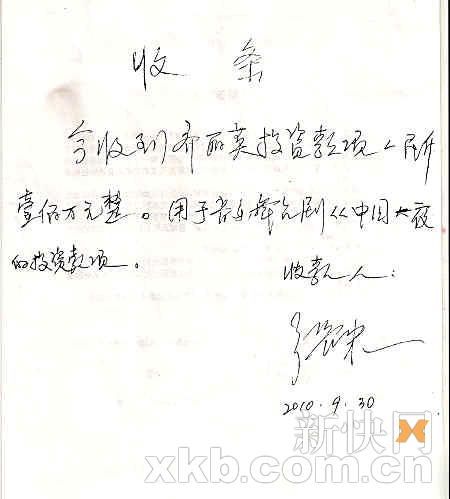 收条
今收到齐丽英投资款项人民币
壹佰万元整。用于音乐舞台剧《中国之夜
的投资款项。
收款人:
2010.9.30
新快网
xkb.com.cn